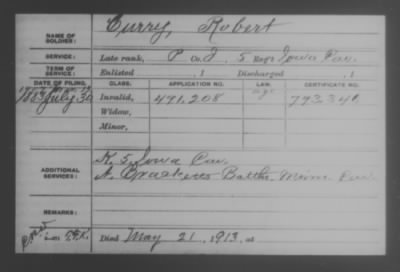 NAME OF SOLDIER: Curry, Robert
SERVICE: Late rank, P Co. I, 5 Reg't Iowa Cav.
TERM OF SERVICE: Enlisted , 1 Discharged , 1
DATE OF FILING. CLASS. APPLICATION NO. LAW. CERTIFICATE NO.
1883 July 30 Invalid, 491.208 793.346
Widow,
Minor,
ADDITIONAL SERVICES: K. 5, Iowa Cav.
A. Bracketts Battn. Minn Cav.
REMARKS:
Died May 21, 1913, at